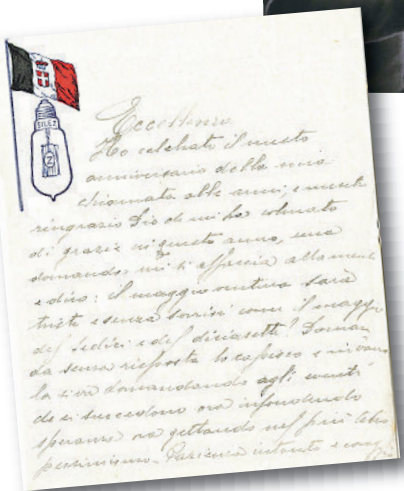 SILEZ
Z
Eccellenza
Ho celebrato il mesto
anniversario della mia
chiamata alle armi, e mentre
ringrazio Dio che mi ha colmato
di grazie in questo anno, una
domanda mi si affaccia alla mente
e dico: il maggio venturo sarà
triste e senza sorrisi come il maggio
del sedici e del diciasette? Doman
da senza risposta lo capisco e invano
la si va domandando agli eventi
che si succedono ora infondendo
speranze ora gettando nel più tetro
pessimismo. Pazienza intanto e